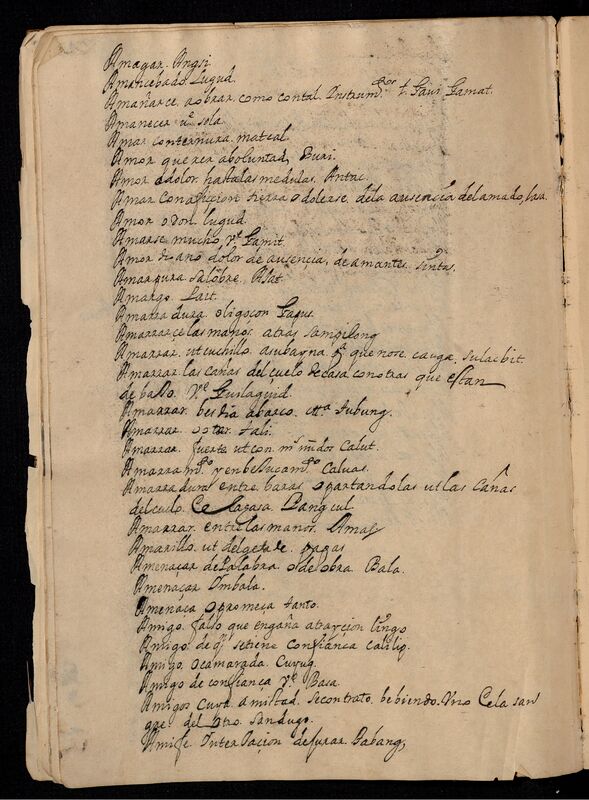 Amagar. Angsi.
Amancebado. Lugud.
Amañarce, aobrar, como contal. Instrum.to t. Gavi Gamat.
Amanecer v.e sola.
Amar conternura. matcal
Amor querer aboluntad, Buri.
Amor edolor hastalas medulas. Antac.
Amar conaficcion tierra o dolerse. dela ausencia del amado, lasa.
Amor o Don. lugud.
Amarse mucho, v.e Gamit.
Amor dolor de ausencia, de amantes. sintas.
Amargura, salobre. Asat.
Amargo Lait.
Amarradura. oligocon Gagus.
Amarrarçe las manos. atras sampilong
Amarrar. ut cuchillo. asubayna. q.e que nose. cayga, sulacbit.
Amarrar las cañas del cuelo de casa conotras que estan
de baxo. V.e Guilaquid.
Amarrar. bestia abarco. ett.a tubung.
Amarrar. o atar. tali.
Amarrar. fuerte ut con m.s ñudos Calut.
Amarram.to y enbesucam.to Caluas.
Amarradura entre baras. apartandolas ut las cañas
del cuelo. Ce lagasa. Bangcul
Amarrar. entre las manos. Amas
Amarillo. ut delgete de. pagas
Amenaçar de Palabra. o de obra. Bala.
Amenaçar Umbala.
Amenaça o promeça tanto.
Amigo. falso que engaña atrayçion lingo
Amigo. de q.n setiene confiança calilig.
Amigo. o camarada. Cuyug.
Amigo de confiança v.e Basa.
Amigos Cuya amistad. secontrato. bebiendo. Vno Cela san
gre. del otro. Sandugo.
de jurar. Tabang,